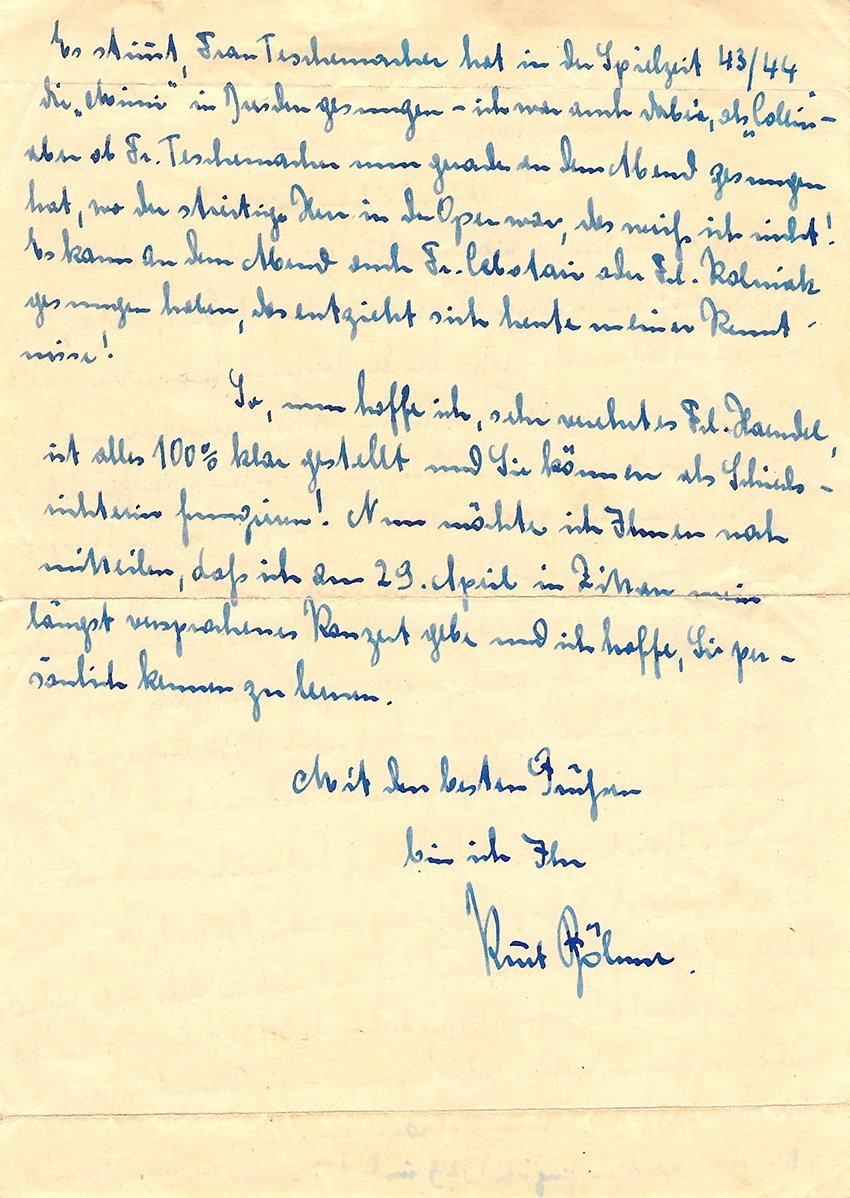 Es stim̄t, Frau Teschemacher hat in der Spielzeit 43/44
die „Mimi“ in Dresden gesungen – ich war auch dabei, als „Collin“ –
aber ob Fr. Teschemacher nun gerade an dem Abend gesungen
hat, wo der streitige Herr in der Oper war, das weiß ich nicht!
Es kann an dem Abend auch Fr. Cebotari oder Frl. Kolniak
gesungen haben, das entzieht sich heute meiner Kennt-
nisse!
So, nun hoffe ich, sehr verehrtes Frl. Haendel,
ist alles 100% klar gestellt und Sie können als Schieds-
richterin fungieren! Nun möchte ich Ihnen noch
mitteilen, daß ich am 29. April in Zittau mein
längst versprochenes Konzert gebe und ich hoffe, Sie per-
sönlich kennen zu lernen.
Mit den besten Grüßen
bin ich Ihr
Kurt Böhme.